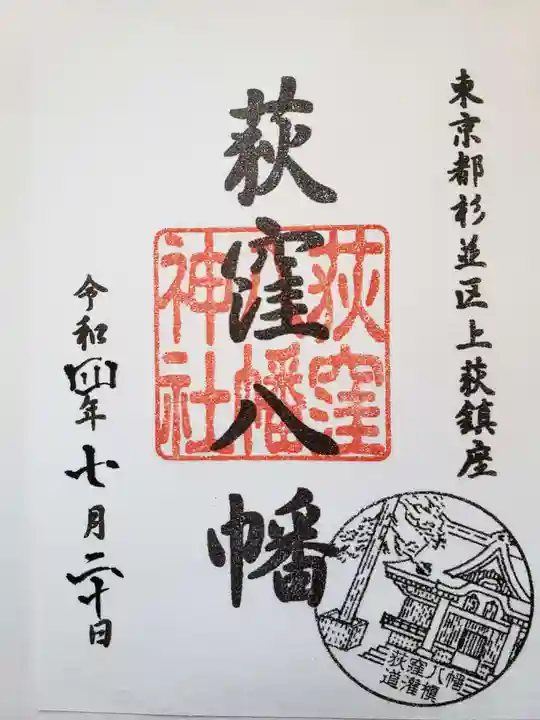 東京都杉並区上荻鎮座
萩窪八幡
荻窪
八幡
神社
令和四年七月二十日
荻窪八幡
道灌槙